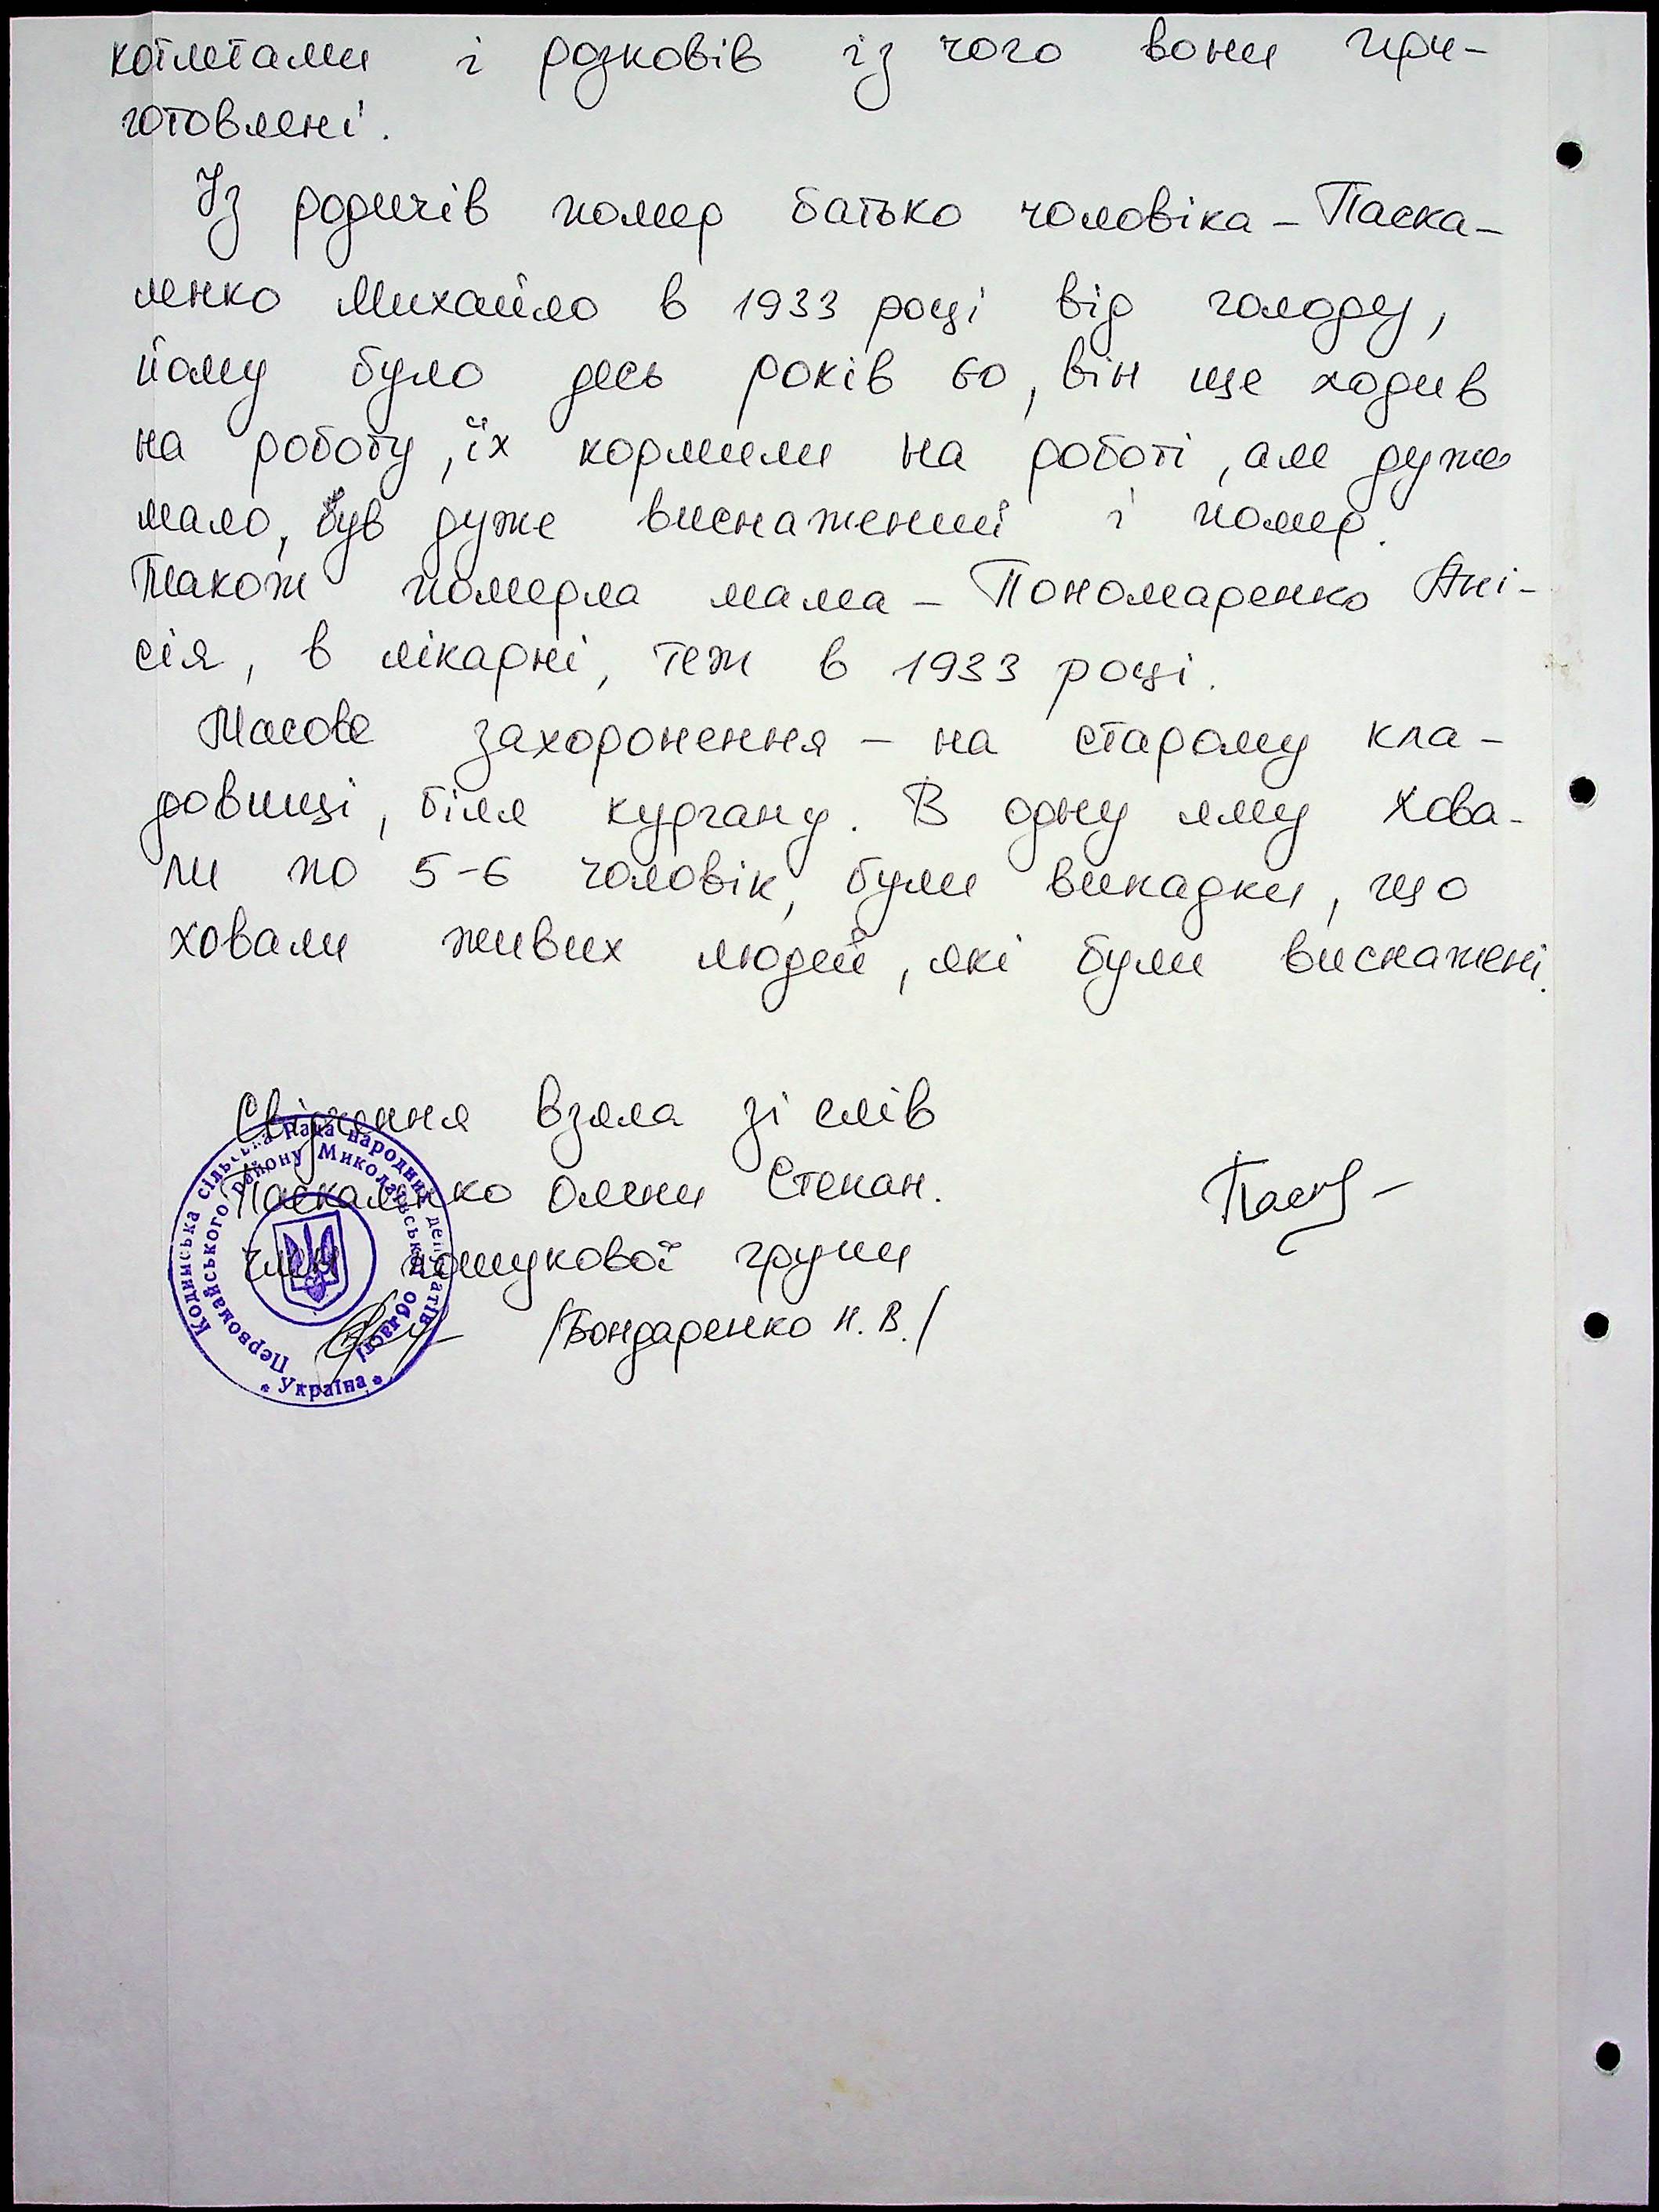 котлетами і розповів із чого вони при-
готовлені.
Із родичів помер батько чоловіка - Паска-
ленко Михайло в 1933 році від голоду,
йому було десь років 60, він ще ходив
на роботу, їх кормили на роботі, але дуже
мало, був дуже виснажений і помер.
Також померла мама - Пономаренко Ані-
сія, в лікарні, теж в 1933 році.
Масове захоронення - на старому кла-
довищі, біля кургану. В одну яму хова-
ли по 5-6 чоловік, були випадки, що
ховали живих людей, які були виснажені.
Свідчення взяла зі слів
Паскаленко Олени Степан.
член пошукової групи
/Бондаренко Н.В./
Кодимська сільська Рада народних депутатів
Первомайського району Миколаївської області
* Україна *